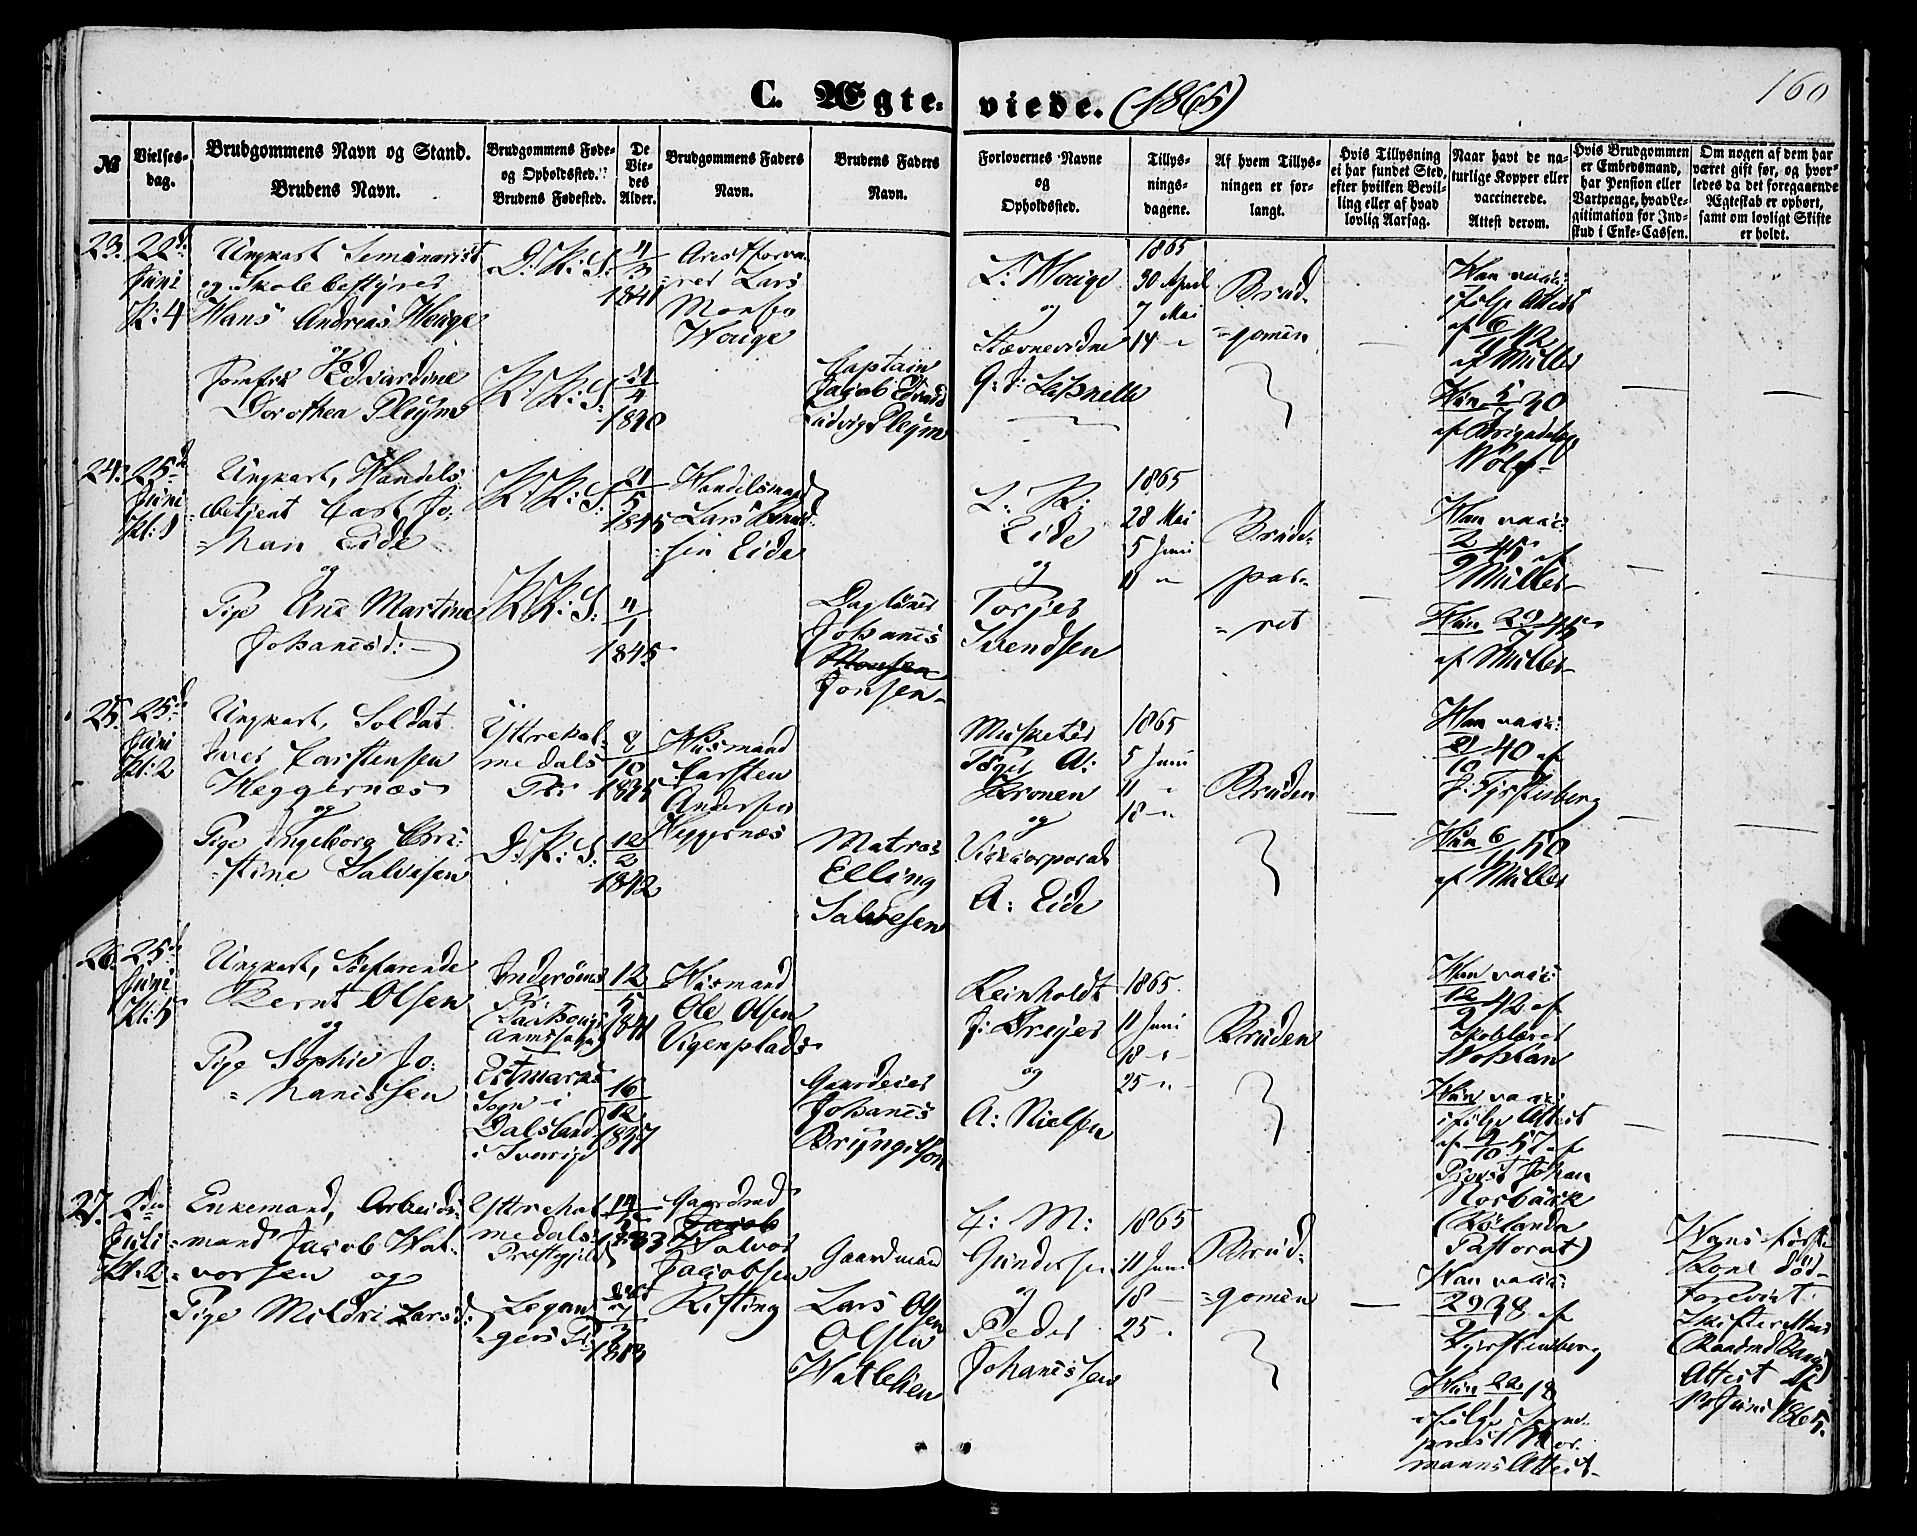 C. Ægte-viede. (1865)
160
№
Vielses-
dag.
Brudgommens Navn og Stand.
Brudens Navn.
Brudgommens Føde-
og Opholdssted.
Brudens Fødested.
De
Vie-
des
Alder.
Brudgommens Faders
Navn.
Brudens Faders
Navn.
Forlovernes Navne
og
Opholdssted.
Tillys-
nings-
dagene.
Af hvem Tillys-
ningen er for-
langt.
Hvis Tillysning
ei har fundet Sted,
efter hvilken Bevil-
ling eller af hvad
lovlig Aarsag.
Naar havt de na-
turlige Kopper eller
vaccinerede.
Attest derom.
Hvis Brudgommen
er Embedsmand,
har Pension eller
Vartpenge, hvad Le-
gitimation for Ind-
skud i Enke-Cassen.
Om nogen af dem har
været gift før, og hvor-
ledes da det foregaaende
Ægteskab er ophørt,
samt om lovligt Skifte
er holdt.
23.
22d.
Juni
Kl: 4
Ungkarl Seminarist
og Skolebestyrer
Hans Andreas Houge
og
Jomfru Edvardine
Dorothea Pleym
D: K: S:
K: K: S:
4/3
1841
21/4
1840
Arestforva-
rer Lars
Monsen
Houge
Captain
Jacob Edvard
Ludvig Pleym
L: Houge
og
Stævnevidne
1865
30 April
7 Mai
14 "
Brud-
=gomen
Han vacc:
ifølge Attest
af 6/9 42
af Müller
Hun 5/7 40
af Brigadelæge
24.
25d
Juni
Kl: 1
Ungkarl, Handels-
betjent Carl Jo-
=han Eide
og
Pige Ane Martine
Johanesd:
K: K: S:
K: K: S:
21/5
1845
4/1
1845
Handelsmand
Lars
sen Eide
Dagleiner
Johanes
Monsen
Jonsen
L: K:
Eide
og
Torjer
Svendsen
1865
28 Mai
5 Juni
11 "
Brude-
par-
=ret
Han vacc:
2/9 45 af
Müller
Hun 29/7 45
af Müller
25.
25d
Juni
Kl: 2
Ungkarl, Soldat
Iver Carstensen
Heggernæs
og
Pige Ingeborg Chri-
=stine Salvesen
Yttrehol-
medals
Pr:
D: K: S:
12/2
1842
Huusmand
Carsten
Andersen
Heggernæs
Matros
Elling
Salvesen
Musketér
Tøger A:
Kronen
og
Vicecorporal
A: Eide
1865
5 Juni
11 "
18 "
Bruden
Han vacc:
40 af
J: Fyrstenberg
Hun 6
50
af Müller
26.
25d
Juni
Kl: 5
Ungkarl, Søefarende
Bernt Olsen
og
Pige Sophie Jo-
=hanessen
Inderøens
Pr:
Sogn i
Dalsland
i Sverige
12/5
1841
16/12
1837
Huusmand
Ole Olsen
Vigenplads
Gaardeier
Johanes
Bryngelson
Reinholdt
J: Dreyer
og
A: Nielsen
1865.
11 Juni
18 "
25 "
Bruden
Han vacc:
12/9 42 af
Skolelærer
Hun vacc:
ifølge Attest
Provst Johan
Norbäck
(Rölanda
Pastorat)
27.
2den
Juli
Kl: 2
Enkemand, Arbeids-
=mand Jacob Hal-
=vorsen og
Pige Mildri Larsd:
Yttrehol-
medals
Præstegjeld
Legan-
=gers Pr:
Gaardmd
Jacob
Halvor
Jacobsen
Gaardmand
Lars Olsen
Olsen
F: M:
Gundersen
og
Peder
Johanessen
1865
11 Juni
18 "
25 "
Brud-
=gomen
Han vacc:
29/9 38 af
Fyrstenberg
Hun 22/1 18
ifølge Sogne-
præst Nor-
manns Attest
Hans første
Kone død
Forevist
Skifteretten
Attest af
Juni 1865.